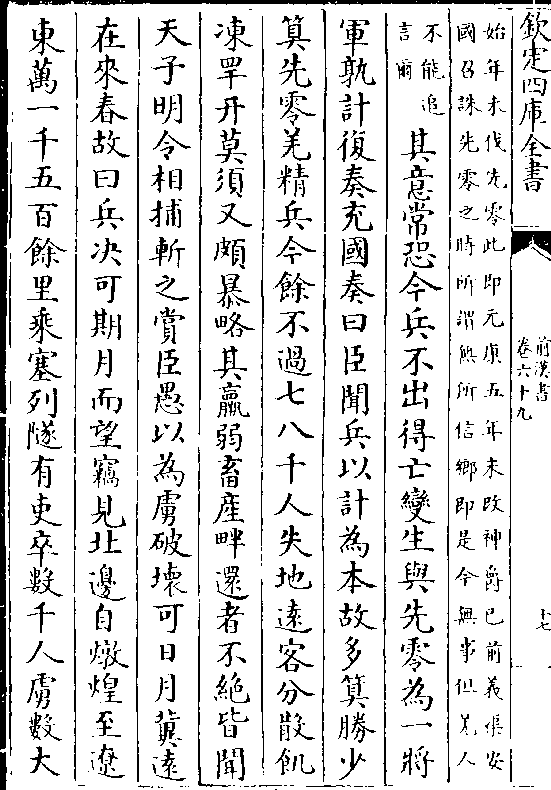 欽定四庫全書
前漢書
卷六十九
十七
始年末伐先零此即元康五年末改神爵已前義渠安
國召誅先零之時所謂無所信鄉即是今無事但羌人
不能追
言爾
其意常恐今兵不出得亡變生與先零為一將
軍孰計復奏充國奏曰臣聞兵以計為本故多算勝少
算先零羌精兵今餘不過七八千人失地遠客分散飢
凍罕幵莫須又頗暴略其羸弱畜産畔還者不絶皆聞
天子明令相捕斬之賞臣愚以為虜破壞可日月冀遠
在來春故曰兵决可期月而望竊見北邊自燉煌至遼
東萬一千五百餘里乘塞列隧有吏卒數千人虜數大